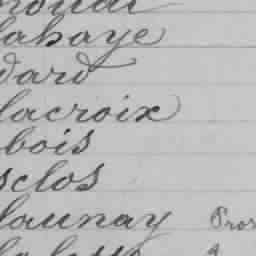 ahaye
dard
lacroix
bois
sclos
launay Pros